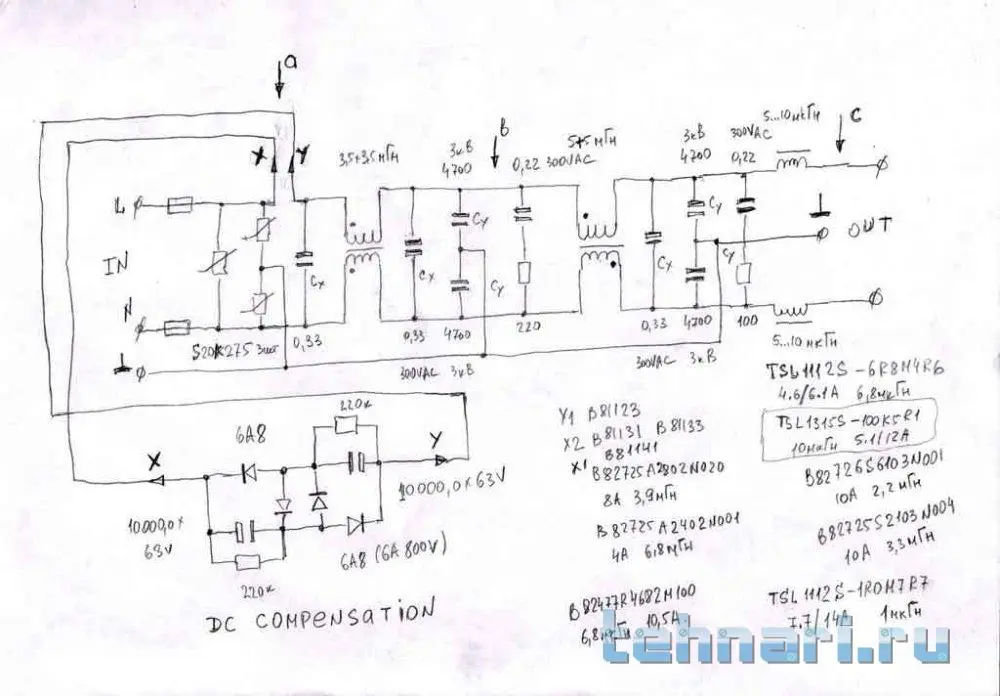 a
X Y
L
IN
N
3,5+3,5мГн
3кВ
4700
в
0,22 300VAC
5+5мГн
3кВ
4700
300VAC
0,22
5...10мкГн
C
OUT
Cx
Cx
Cy
Cy
Cx
Cy
Cy
S20K275 3шт
0,33
0,33
4700
220
0,33
4700
100
300VAC 3кВ
300VAC 3кВ
5...10мкГн
220к
6A8
X
Y
10000,0x63V
10000,0x
63V
6A8 (6A 800V)
220к
DC COMPENSATION
Y1 B81123
X2 B81131 B81133
X1 B81141
B82725A2802N020
8A 3,9мГн
B82725A2402N001
4A 6,8мГн
B82477R4682M100
6,8мкГн 10,5A
TSL1112S-6R8M4R6
4.6/6.1A 6,8мкГн
TSL1315S-100K5R1
10мкГн 5.1/12A
B82726S6103N001
10A 2,2мГн
B82725S2103N004
10A 3,3мГн
TSL1112S-1R0M7R7
7.7/14A 1мкГн
tehnari.ru